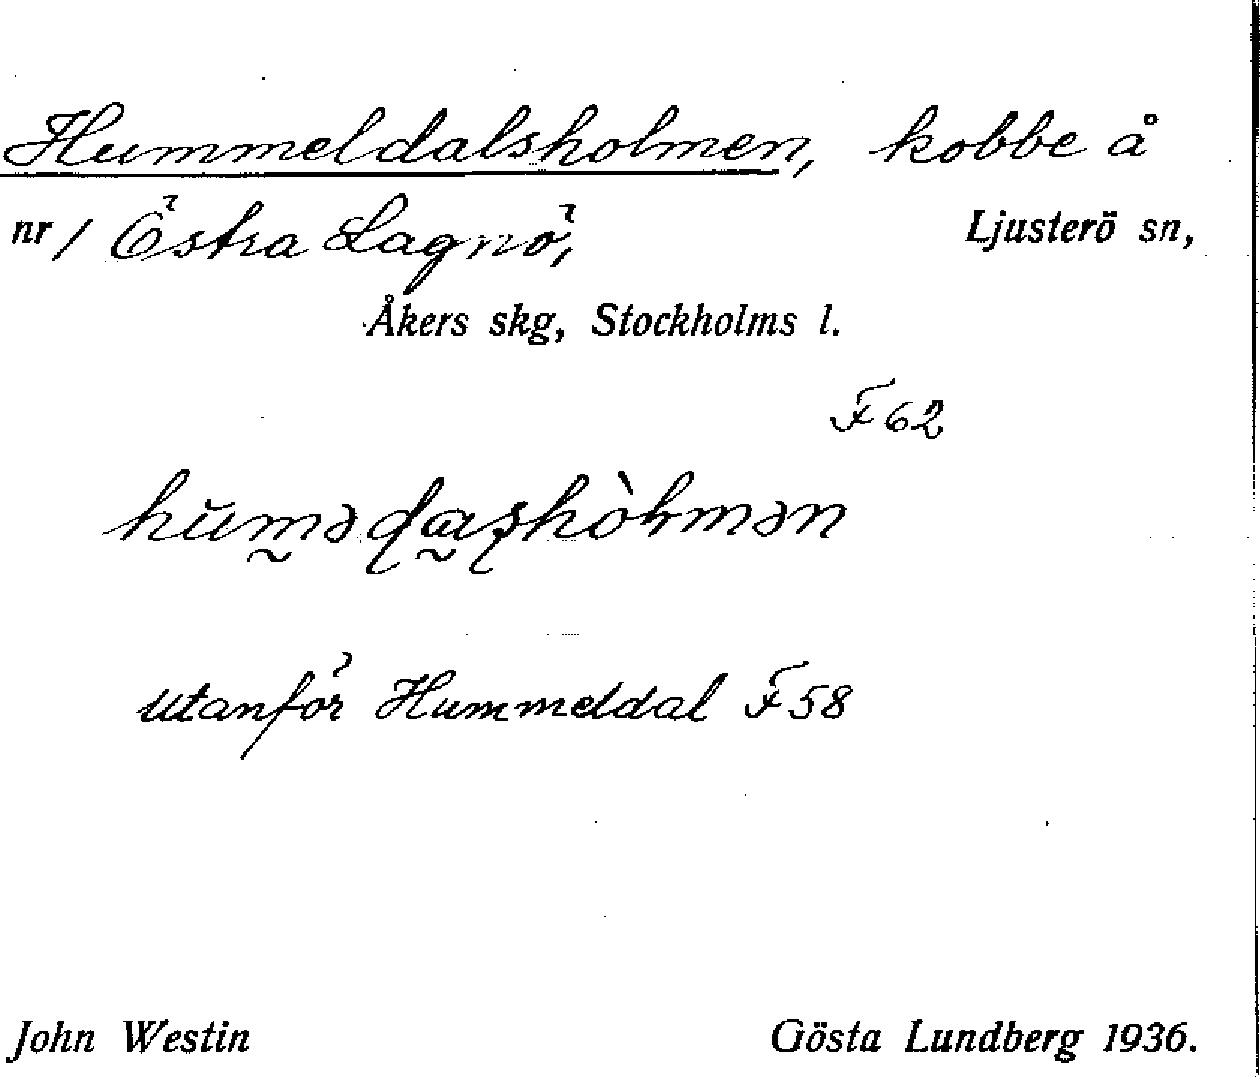 Hummeldalsholmen, kobbe å
nr/ Östra Lagnö, Ljusterö sn,
Åkers skg, Stockholms l.
F 62
utanför Hummeldal F 58
John Westin Gösta Lundberg 1936.